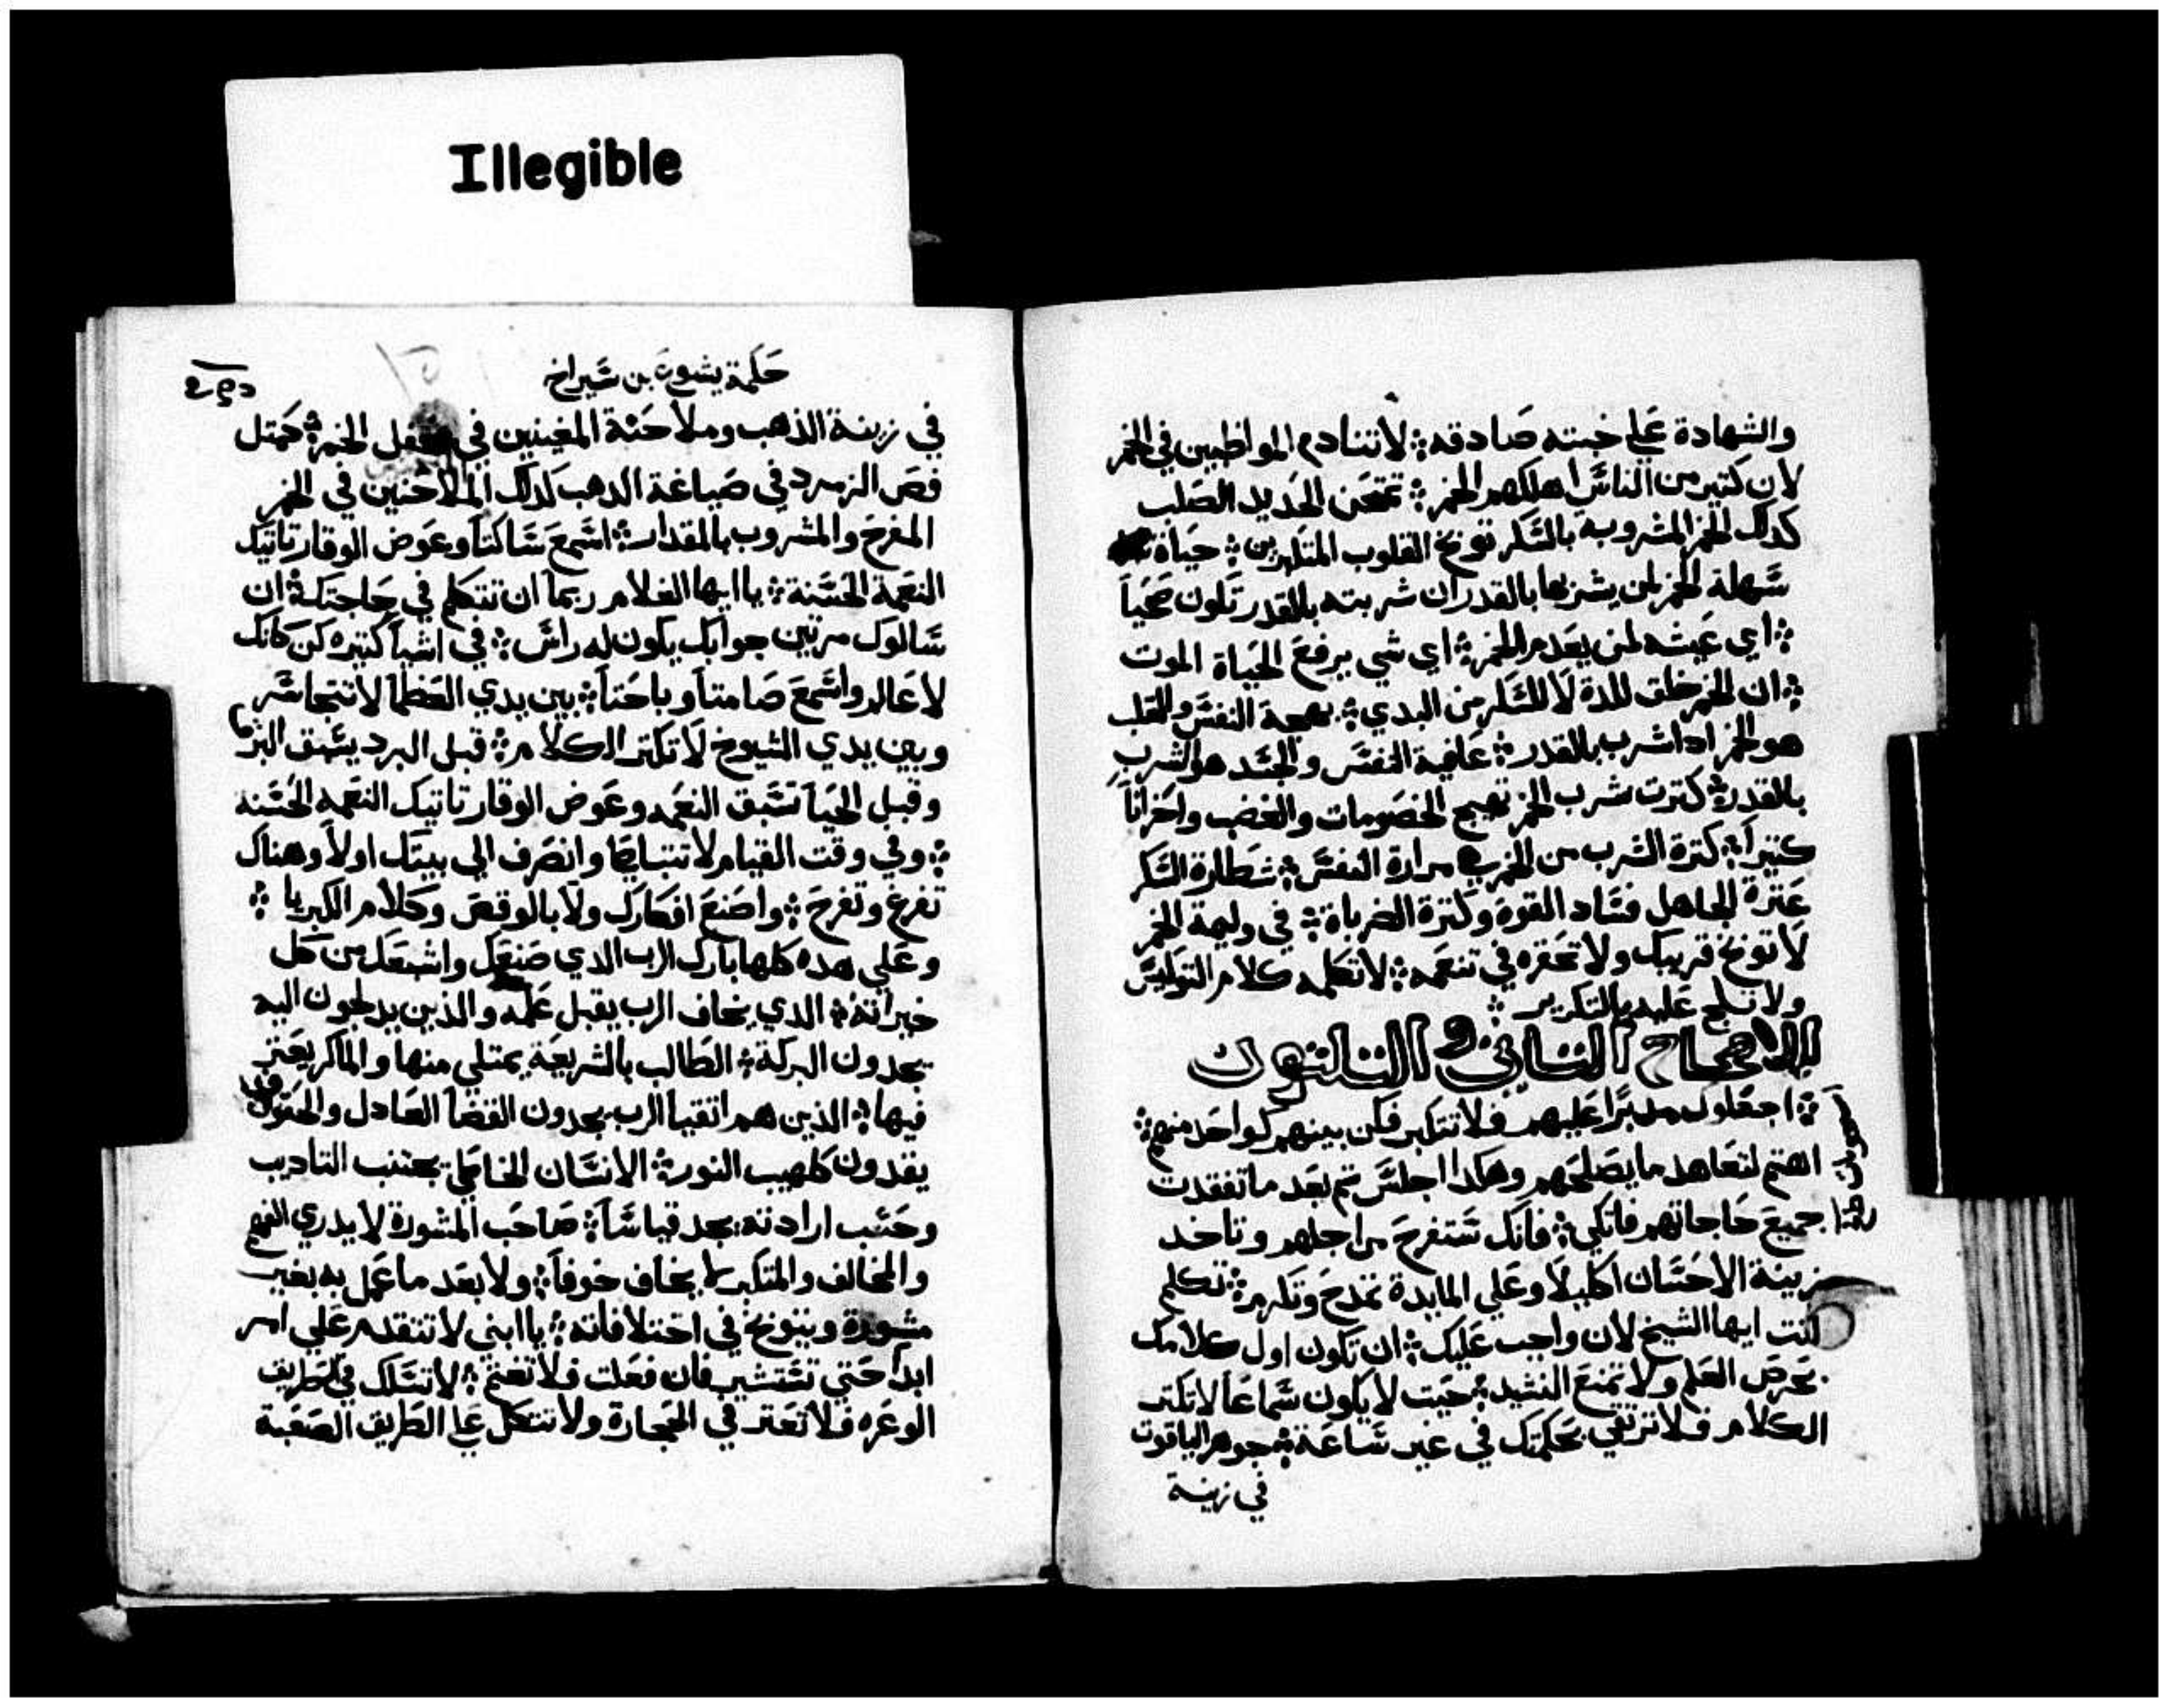 Illegible
والشهادة علي خبته صادقه ܀ لاتنادم المواظبين في الخمر
لان كتير من الناس اهلكهم الخمر ܀ تمتحن الحديد الصلب
كدلك الخمر المشروبة بالسكر توبخ القلوب المتكبرين ܀ حياة
سهلة الخمر لمن يشربها بالقدر ان شربته بالقدر تكون صحياً
܀ اي عيشه لمن يعدم الخمر ܀ اي شي يرفع الحياة الموت
܀ ان الخمر خلق للدة لا للسكر من البدي ܀ بهجة النفس والقلب
هو الخمر ادا شرب بالقدر ܀ عافية النفس والجسد هو الشرب
بالقدر ܀ كترت شرب الخمر تهيج الخصومات والغضب واحزاناً
كتيراً ܀ كترة الشرب من الخمر هي مرارة النفس ܀ شطارة السكر
عترة الجاهل فساد القوة وكترة الضرباة ܀ في وليمة الخمر
لا توبخ قريبك ولا تحقره في تنعمه ܀ لاتكلمه كلام التوبيس
ولا تلج عليه بالتكرير ܀
الاصحاح التاني والتلتون
܀ اجعلوك مدبراً عليهم فلا تتكبر فكن بينهم كواحد منهم ܀
اهتم لتعاهد ما يصلحهم وهكدا اجلس تم بعد ما تفقدت
جميع حاجاتهم فاتكي ܀ فانك ستفرح من اجلهم وتاخد
زينة الاحسان اكليلاً وعلي المايدة تمدح وتكرم ܀ تكلم
انت ايها الشيخ لان واجب عليك ܀ ان تكون اول كلامك
بحرص العلم ولا تمنع النشيد ܀ حيت لا يكون سماعاً لاتكتر
الكلام فلا ترتقي بحكمتك في غير ساعة ܀ جوهر الياقوت
في زينة
حكمة يشوع بن شيراخ
في زينة الذهب وملاحنة المغنيين في محفل الخمر ܀ كمتل
فص الزمرد في صياغة الدهب كدلك الملاحنين في الخمر
المفرح والمشروب بالمقدار ܀ اسمع ساكتاً وعوض الوقار تاتيك
النعمة الحسنة ܀ يا ايها الغلام ربما ان تتكلم في حاجتك ܀ ان
سالوك مرتين جوابك يكون له راس ܀ في اشيا كتيره كن كانك
لا عالم واسمع صامتاً وباحتاً ܀ بين يدي العظما لا تتجاسر
وبين يدي الشيوخ لا تكتر الكلام ܀ قبل البرد يسبق البرق
وقبل الحيا تسبق النعمه وعوض الوقار تاتيك النعمه الحسنه
܀ وفي وقت القيام لا تتباطا وانصرف الي بيتك اولاً وهناك
تفرغ وتفرح ܀ واصنع افكارك ولا بالوقص وكلام الكبريا ܀
وعلي هده كلها بارك الرب الدي صنعك واشبعك من كل
خيراته ܀ الدي يخاف الرب يقبل علمه والذين يدلجون اليه
يجدون البركة ܀ الطالب بالشريعة يمتلي منها والماكر يعتر
فيها ܀ الذين هم اتقيا الرب يجدون القضا العادل والحقوق
يقدون كلهيب النور ܀ الانسان الخاطي يجتنب التاديب
وحسب ارادته يجد قياساً ܀ صاحب المشورة لا يدري الفهم
والمخالف والمتكبر لا يخاف خوفاً ܀ ولا بعد ما عمل به بغير
مشورة ويتوبخ في اختلافاته ܀ يا ابني لا تتقدم علي امر
ابداً حتي تستشير فان فعلت فلا تغتم ܀ لا تسلك في طريق
الوعره فلا تعتر في الحجارة ولا تتكل علي الطريق الصعبة